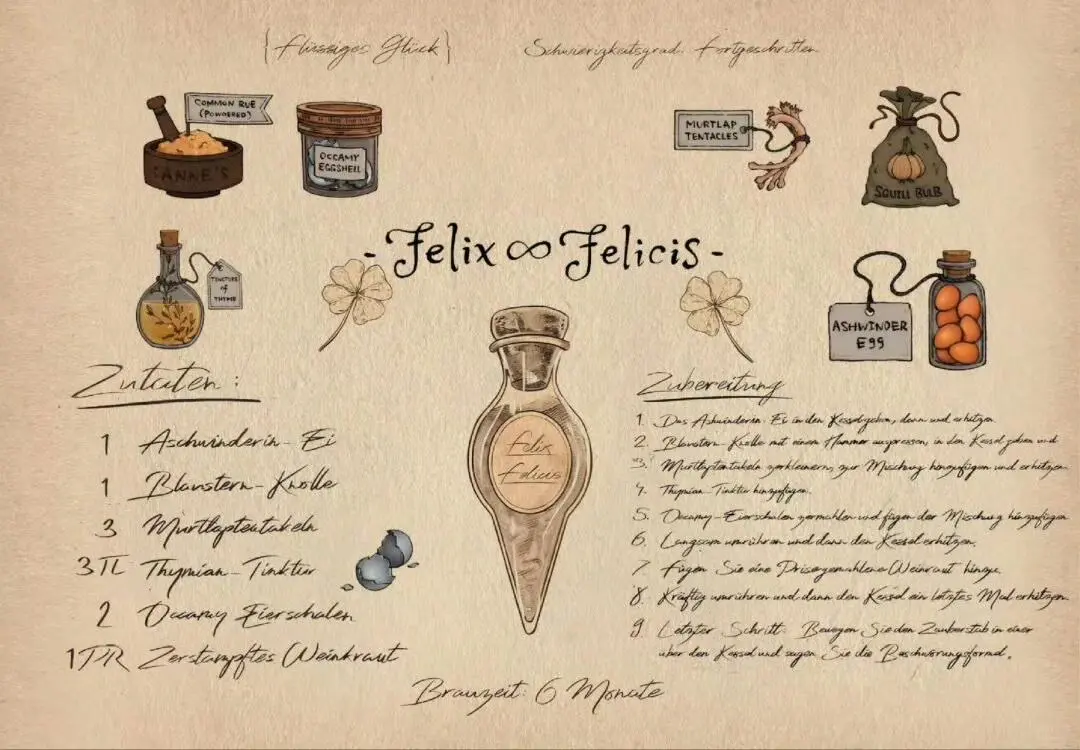 {flüssiges Glück}
Schwierigkeitsgrad: Fortgeschritten
COMMON RUE
(POWDERED)
OCCAMY
EGGSHELL
MURTLAP
TENTACLES
SQUILL BULB
- Felix ∞ Felicis -
TINCTURE
of
THYME
ASHWINDER
E99
Zutaten:
1 Aschwinderin-Ei
1 Blaustern-Knolle
3 Murtlaptentakeln
3TL Thymian-Tinktur
2 Occamy Eierschalen
1PR Zerstampftes Weinkraut
Felix
Felicis
Zubereitung
1. Das Ashwinderin-Ei in den Kessel geben, dann und erhitzen
2. Blaustern-Knolle mit einem Hammer auspressen, in den Kessel geben und
3. Murtlaptentakeln zerkleinern, zur Mischung hinzufügen und erhitzen.
4. Thymian-Tinktur hinzufügen.
5. Occamy-Eierschalen zermahlen und fügen der Mischung hinzufügen
6. Langsam umrühren und dann den Kessel erhitzen.
7. Fügen Sie eine Prise gemahlene Weinraut hinzu.
8. Kräftig umrühren und dann den Kessel ein letztes Mal erhitzen.
9. Letzter Schritt: Bewegen Sie den Zauberstab in einer
über den Kessel und sagen Sie die Beschwörungsformel.
Brauzeit: 6 Monate